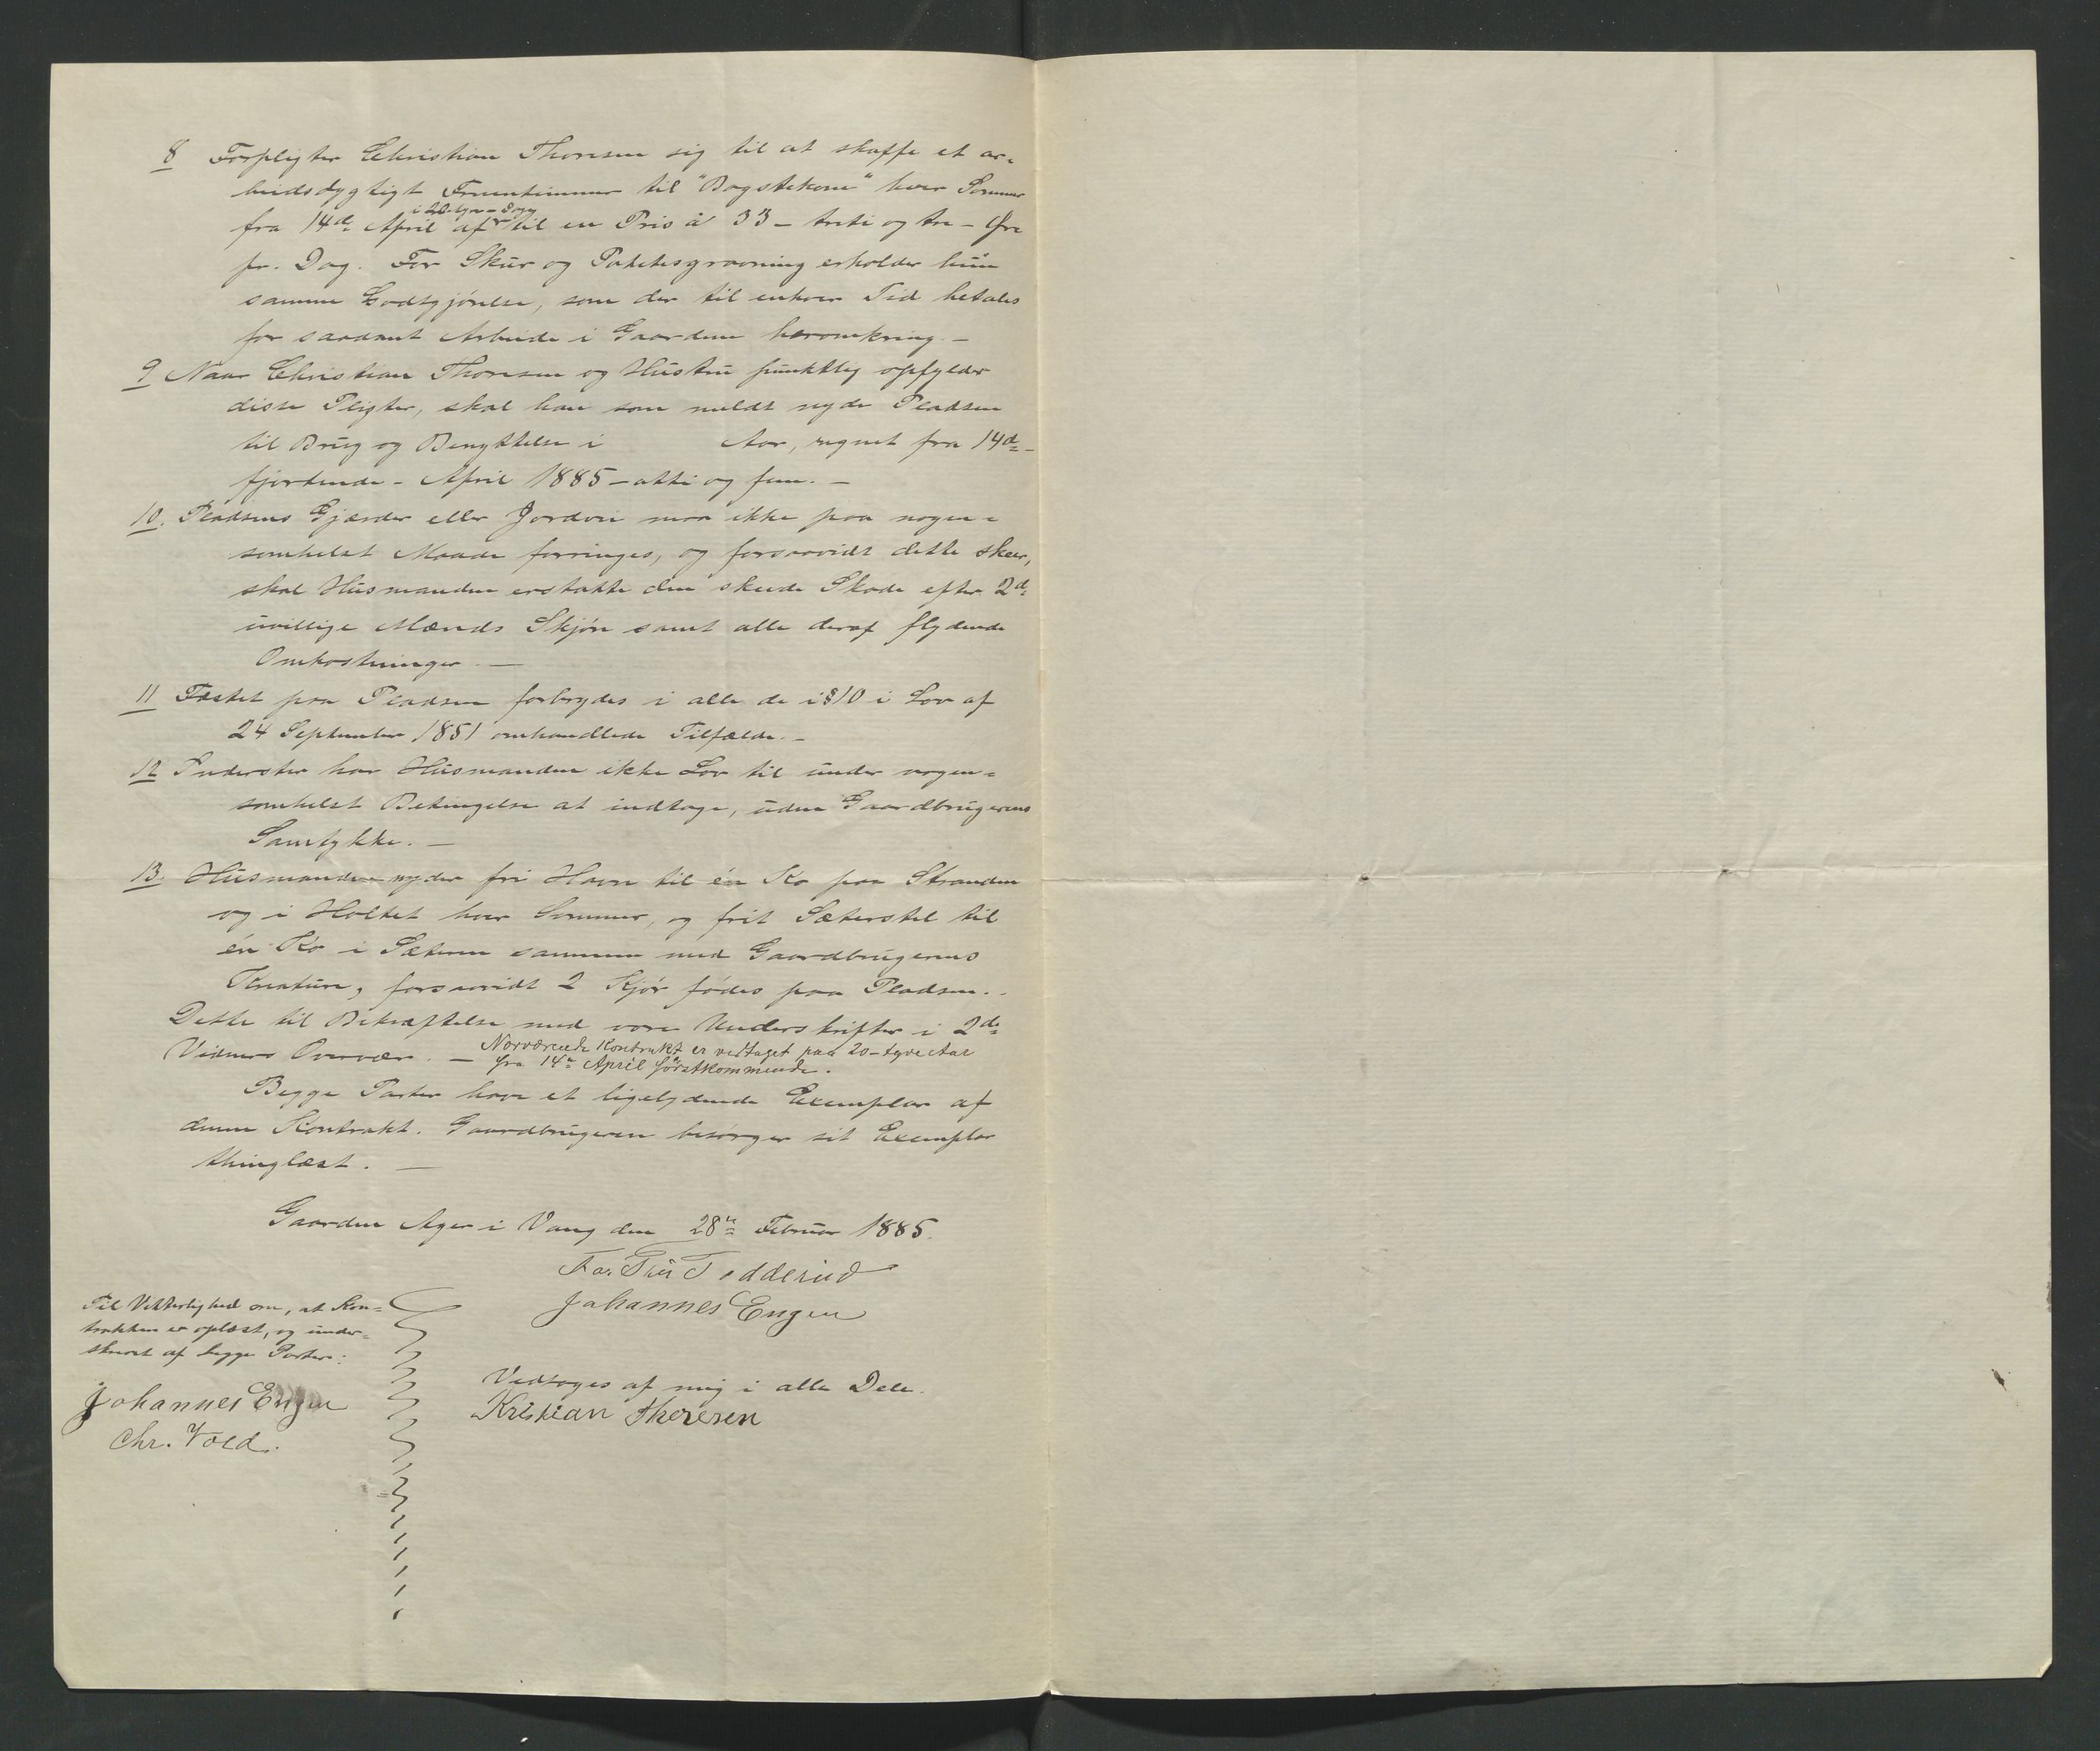 8 Forpligter Christian Thoresen sig til at skaffe et ar-
beidsdygtigt Fruentimmer til "Bagstekone" hver Sommer
fra 14de April af til en Pris à 33 - treti og tre - Øre
pr. Dag. For Skur og Potetesgravning erholder hun
samme Godtgjörelse, som der til enhver Tid betales
for saadant Arbeide i Gaardene heromkring. -
9 Naar Christian Thoresen og Hustru punktlig opfylder
disse Pligter, skal han som meldt nyde Pladsen
til Brug og Benyttelse i Aar, regnet fra 14de -
fjortende - April 1885 - otti og fem. -
10. Pladsens Gjærder eller Jordvei maa ikke paa nogen-
somhelst Maade forringes, og forsaavidt dette skeer,
skal Husmanden erstatte den skeede Skade efter 2de
uvillige Mænds Skjön samt alle deraf flydende
Omkostninger. -
11 Fæstet paa Pladsen forbrydes i alle de i § 10 i Lov af
24 September 1851 omhandlede Tilfælde. -
12 Inderster har Husmanden ikke Lov til under nogen-
somhelst Betingelse at indtage, uden Gaardbrugerens
Samtykke. -
13. Husmanden nyder fri Havn til én Ko paa Stranden
og i Holtet hver Sommer, og frit Sæterstel til
én Ko i Sæteren sammen med Gaardbrugerens
Kreature, forsaavidt 2 Kjör födes paa Pladsen. -
Dette til Bekræftelse med vore Underskrifter i 2de
Vidners Overvær. - Nærværende Kontrakt er vedtaget paa 20 - tyve Aar
fra 14de April førstkommende.
Begge Parter have et ligelydende Exemplar af
denne Kontrakt. Gaardbrugeren besörger sit Exemplar
thinglæst. -
Gaarden Ager i Vang den 28de Februar 1885.
Johannes Engen
Til Vitterlighed om, at Kon-
trakten er oplæst, og under-
skrevet af begge Parter:
Johannes Engen
Chr. Vold.
Vedtages af mig i alle Dele.
Kristian Thoresen